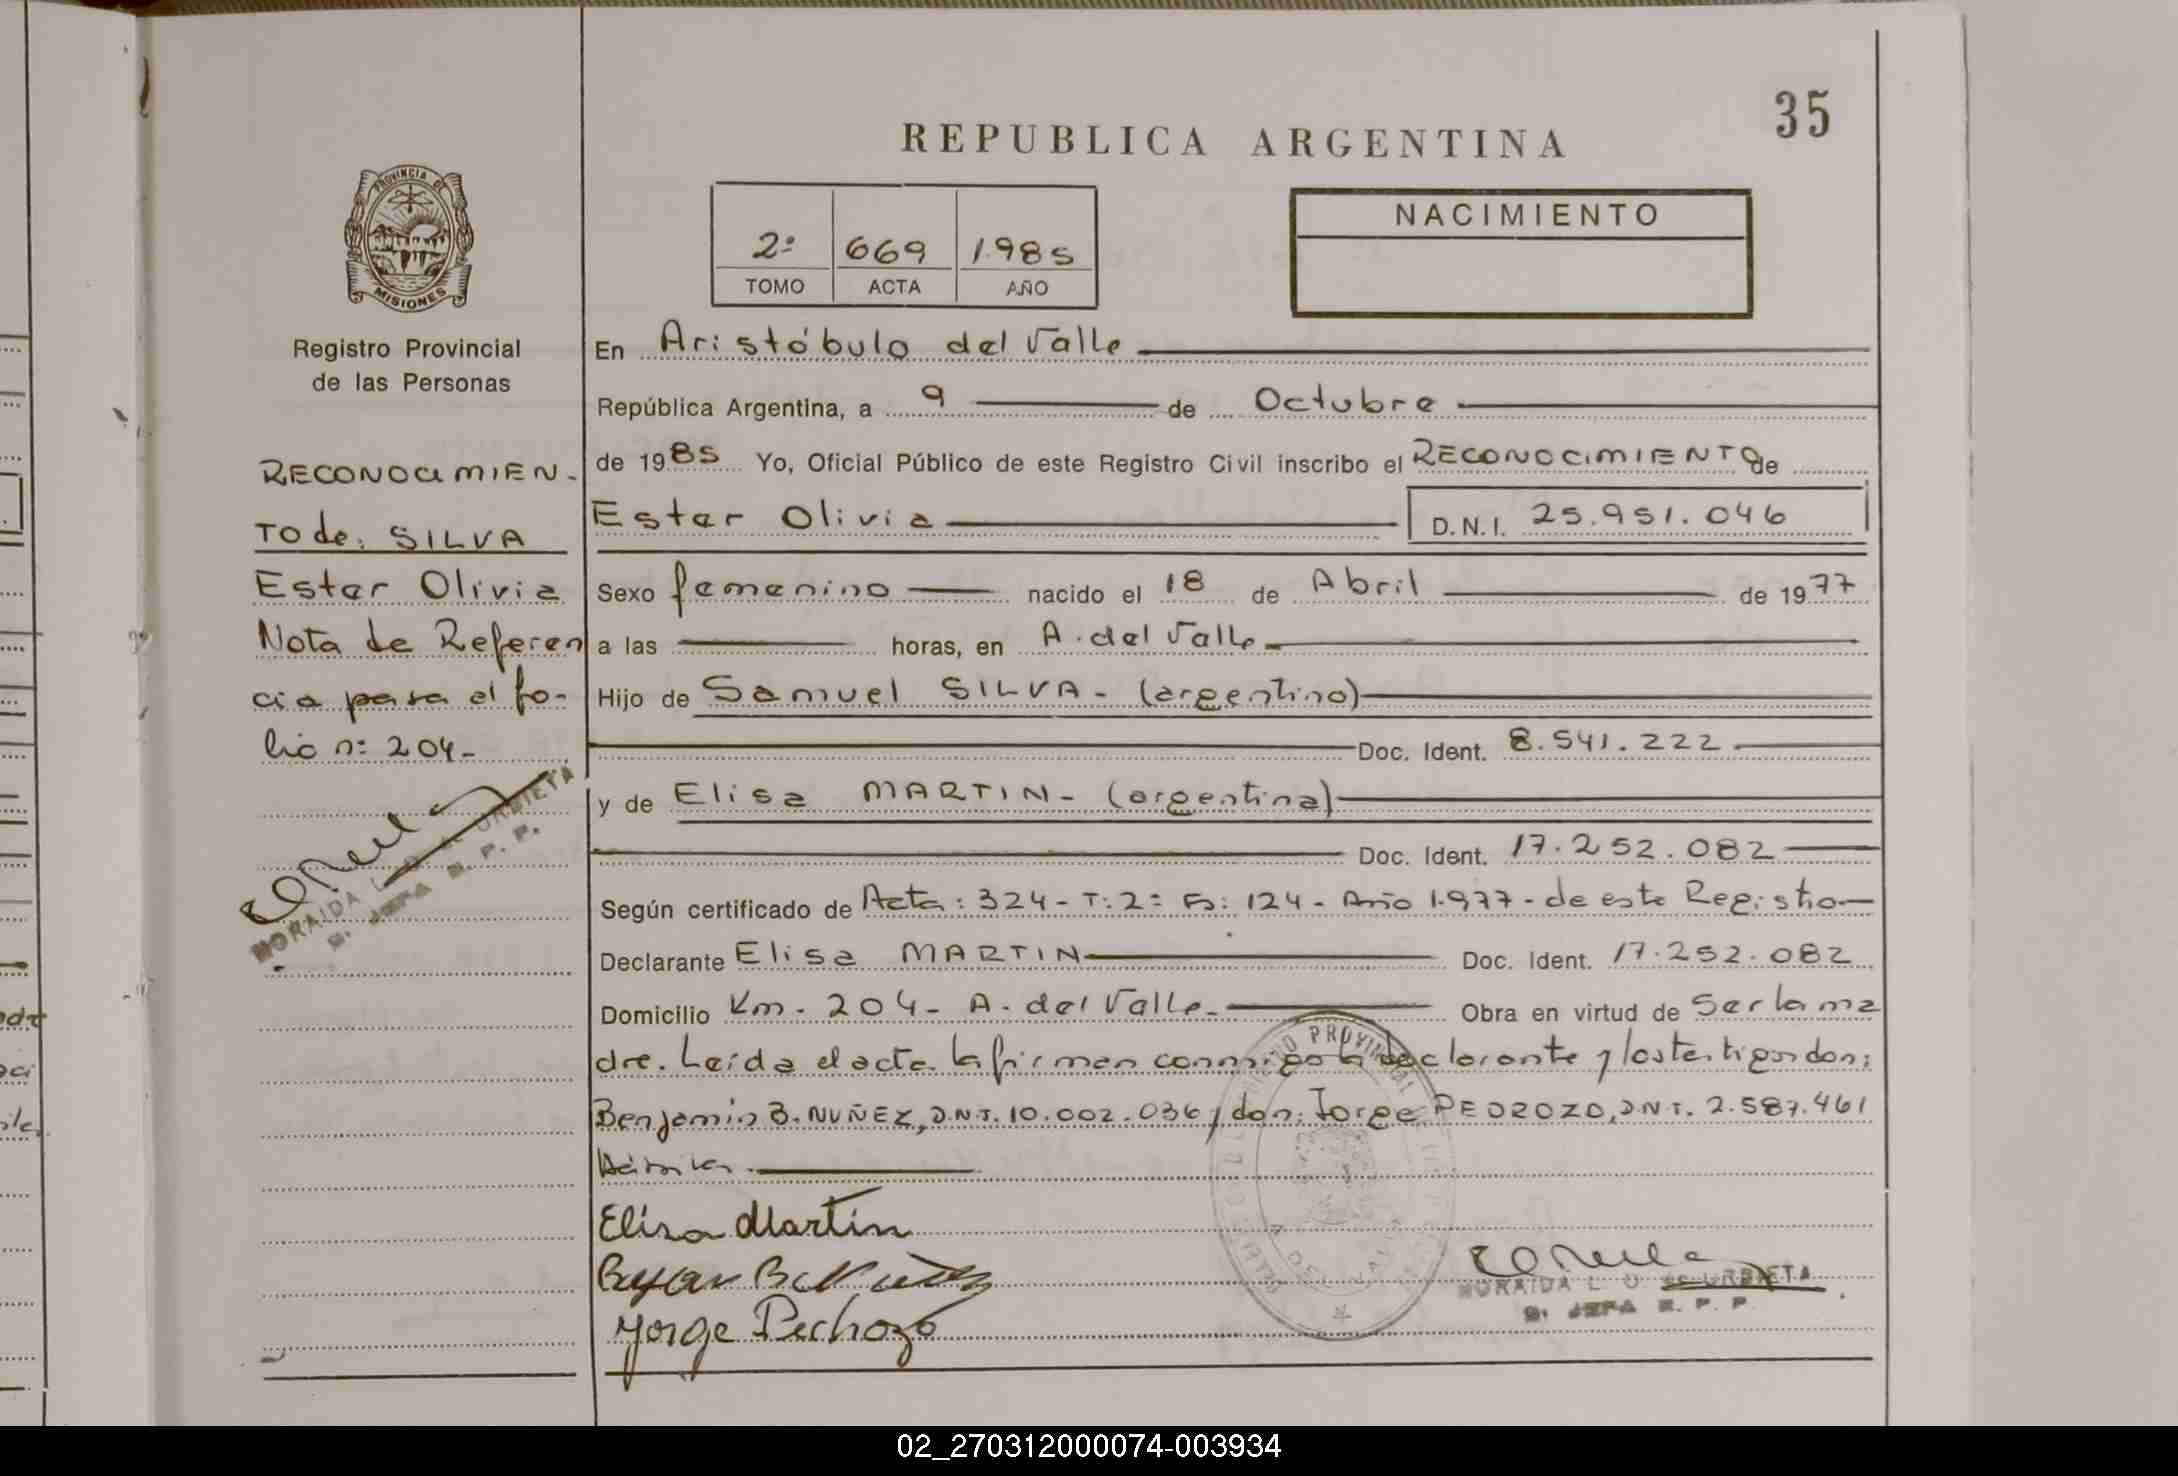 35
REPUBLICA ARGENTINA
PROVINCIA DE
MISIONES
2º 669 1.985
TOMO ACTA AÑO
NACIMIENTO
Registro Provincial
de las Personas
RECONOCIMIEN-
TO de: SILVA
Ester Olivia
Nota de Referen
cia para el fo-
lio nº 204-
En Aristóbulo del Valle
República Argentina, a 9 de Octubre
de 1985 Yo, Oficial Público de este Registro Civil inscribo el RECONOCIMIENTO de
Ester Olivia D.N.I. 25.951.046
Sexo femenino nacido el 18 de Abril de 1977
a las horas, en A. del Valle
Hijo de Samuel SILVA- (argentino)
Doc. Ident. 8.541.222
y de Elisa MARTIN- (argentina)
Doc. Ident. 17.252.082
Según certificado de Acta: 324- T: 2º Fº: 124- Año 1.977- de este Registro
Declarante Elisa MARTIN Doc. Ident. 17.252.082
Domicilio Km. 204- A. del Valle- Obra en virtud de Ser la ma
dre. Leída el acta la firman conmigo la declarante y los testigos don:
Benjamin B. NUÑEZ, D.N.I. 10.002.036 y don: Jorge PEDROZO, D.N.I. 2.587.461
Elisa Martin
Jorge Pedrozo
NORAIDA L. O. de URBIETA
JEFA R. P. P.
02_270312000074-003934